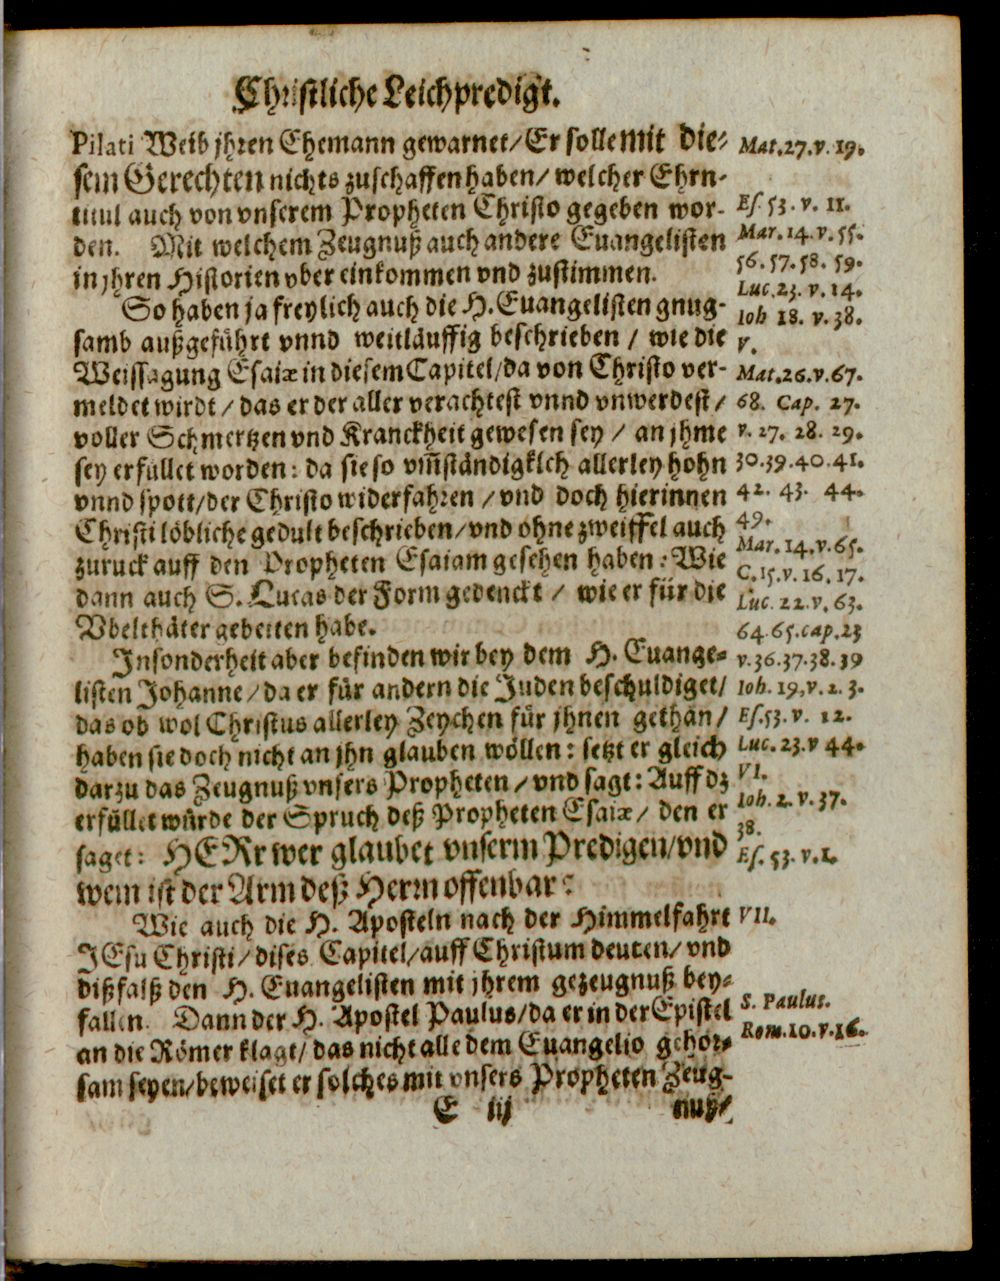 Christliche Leichpredigt.
Pilati Weib jhren Ehemann gewarnet/Er solle mit die-
sem Gerechten nichts zuschaffen haben/ welcher Ehrn-
titul auch von vnserem Propheten Christo gegeben wor-
den. Mit welchem Zeugnuß auch andere Euangelisten
in jhren Historien vber einkommen vnd zustimmen.
So haben ja freylich auch die H. Euangelisten gnug-
samb außgeführt vnnd weitläuffig beschrieben / wie die
Weissagung Esaiæ in diesem Capitel/da von Christo ver-
meldet wirdt / das er der aller verachtest vnnd vnwerdest /
voller Schmertzen vnd Kranckheit gewesen sey / an jhme
sey erfüllet worden: da sie so vm̃ständigklch allerley hohn
vnnd spott/der Christo widerfahren / vnd doch hierinnen
Christi löbliche gedult beschrieben/vnd ohne zweiffel auch
zuruck auff den Propheten Esaiam gesehen haben: Wie
dann auch S. Lucas der Form gedenckt / wie er für die
Vbelthäter gebetten habe.
Insonderheit aber befinden wir bey dem H. Euange-
listen Johanne/da er für andern die Juden beschuldiget/
das ob wol Christus allerley Zeychen für jhnen gethan/
haben sie doch nicht an jhn glauben wöllen: setzt er gleich
darzu das Zeugnuß vnsers Propheten/ vnd sagt: Auff dz
erfüllet würde der Spruch deß Propheten Esaiæ/ den er
saget: HERr wer glaubet vnserm Predigen/vnd
wem ist der Arm deß Herrn offenbar?
Wie auch die H. Aposteln nach der Himmelfahrt
JEsu Christi/ dises Capitel/auff Christum deuten/ vnd
dißfalß den H. Euangelisten mit jhrem gezeugnuß bey-
fallen. Dann der H. Apostel Paulus/da er in der Epistel
an die Römer klagt/ das nicht alle dem Euangelio gehor-
sam seyen/beweiset er solches mit vnsers Propheten Zeug-
E iij nuß/
Mat.27.v.19.
Es. 53. v. 11.
Mar.14.v.55.
56.57.58.59.
Luc.23. v.14.
Ioh 18. v.38.
V.
Mat.26.v.67.
68. Cap. 27.
v. 27. 28. 29.
30.39.40.41.
42. 43. 44.
49.
Mar.14.v.65.
C.15.v.16.17.
Luc. 22.v.63.
64.65.cap.23
v.36.37.38.39
Ioh. 19.v.2.3.
Es.53.v. 12.
Luc.23.v 44.
VI.
Ioh. 2.v.37.
38.
Es. 53.v.1.
VII.
S. Paulus.
Rom.10.v.16.